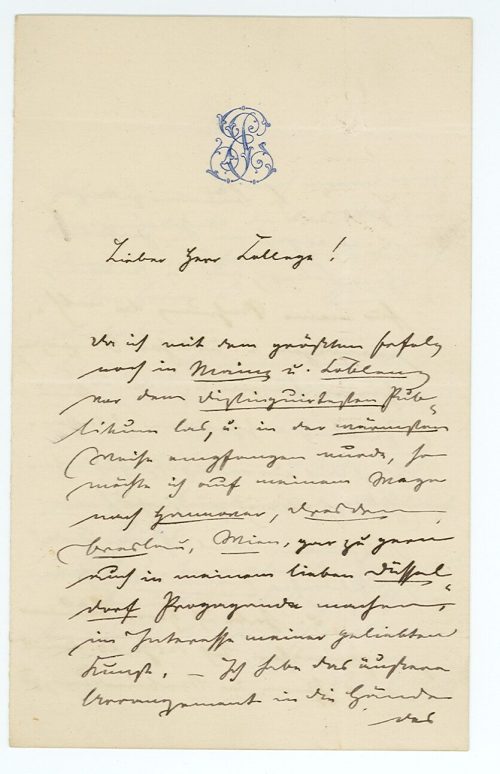 Lieber Herr College!
Da ich mit dem größten Erfolg
noch in Mainz u. Coblenz
vor dem distinguirtesten Pub-
likum las, u. in der wärmsten
Weise empfangen wurde, so
möchte ich auf meinem Wege
nach Hannover, Dresden,
Breslau, Wien, gar zu gern
auch in meinem lieben Düssel-
dorf Propaganda machen,
im Interesse meiner geliebten
Kunst. – Ich habe das äußere
Arrangement in die Hände
des